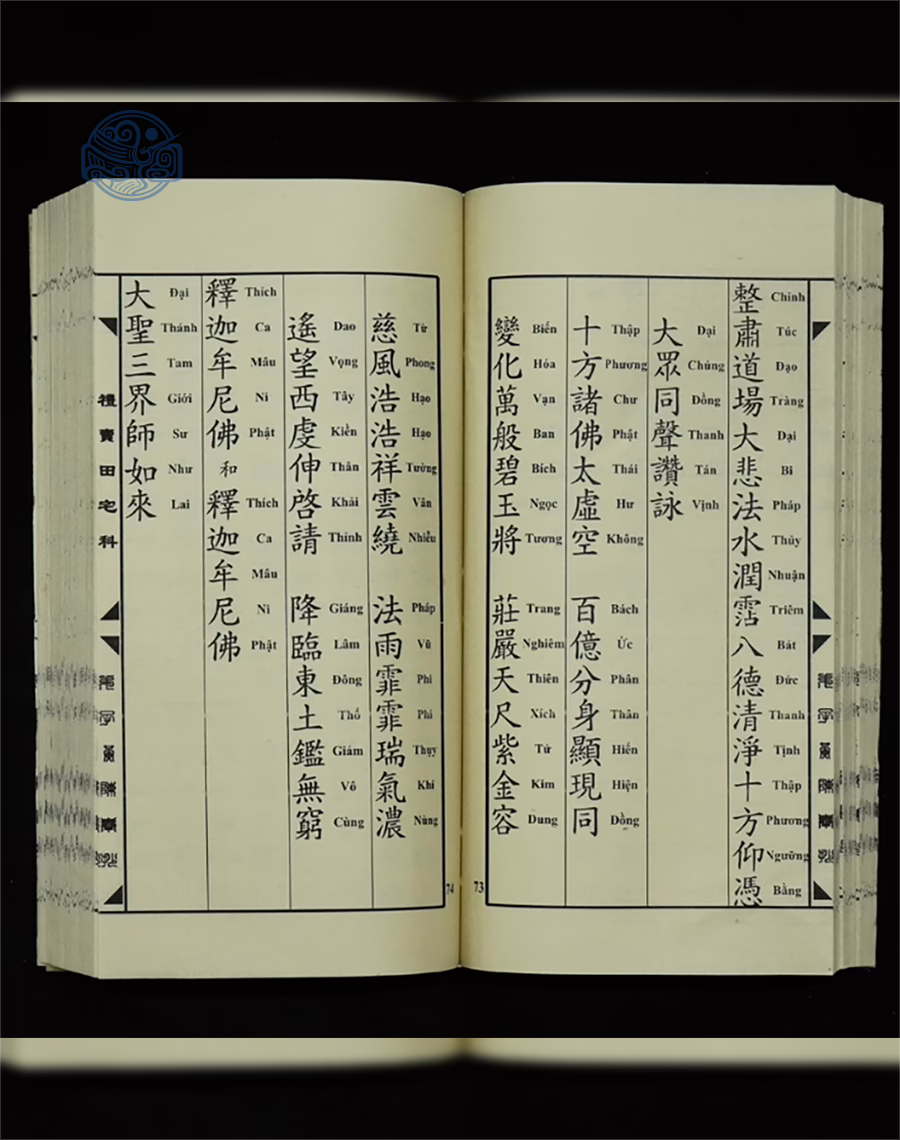 整肅道場大悲法水潤霑八德清淨十方仰憑
Chỉnh Túc Đạo Tràng Đại Bi Pháp Thủy Nhuận Triêm Bát Đức Thanh Tịnh Thập Phương Ngưỡng Bằng
大眾同聲讚詠
Đại Chúng Đồng Thanh Tán Vịnh
十方諸佛太虛空 百億分身顯現同
Thập Phương Chư Phật Thái Hư Không Bách Ức Phân Thân Hiển Hiện Đồng
變化萬般碧玉將 莊嚴天尺紫金容
Biến Hóa Vạn Ban Bích Ngọc Tương Trang Nghiêm Thiên Xích Tử Kim Dung
73
慈風浩浩祥雲繞 法雨霏霏瑞氣濃
Từ Phong Hạo Hạo Tường Vân Nhiễu Pháp Vũ Phi Phi Thụy Khí Nùng
遙望西虔伸啓請 降臨東土鑑無窮
Dao Vọng Tây Kiền Thân Khải Thỉnh Giáng Lâm Đông Thổ Giám Vô Cùng
釋迦牟尼佛 和 釋迦牟尼佛
Thích Ca Mâu Ni Phật Thích Ca Mâu Ni Phật
大聖三界師如來
Đại Thánh Tam Giới Sư Như Lai
禮賣田宅科
74